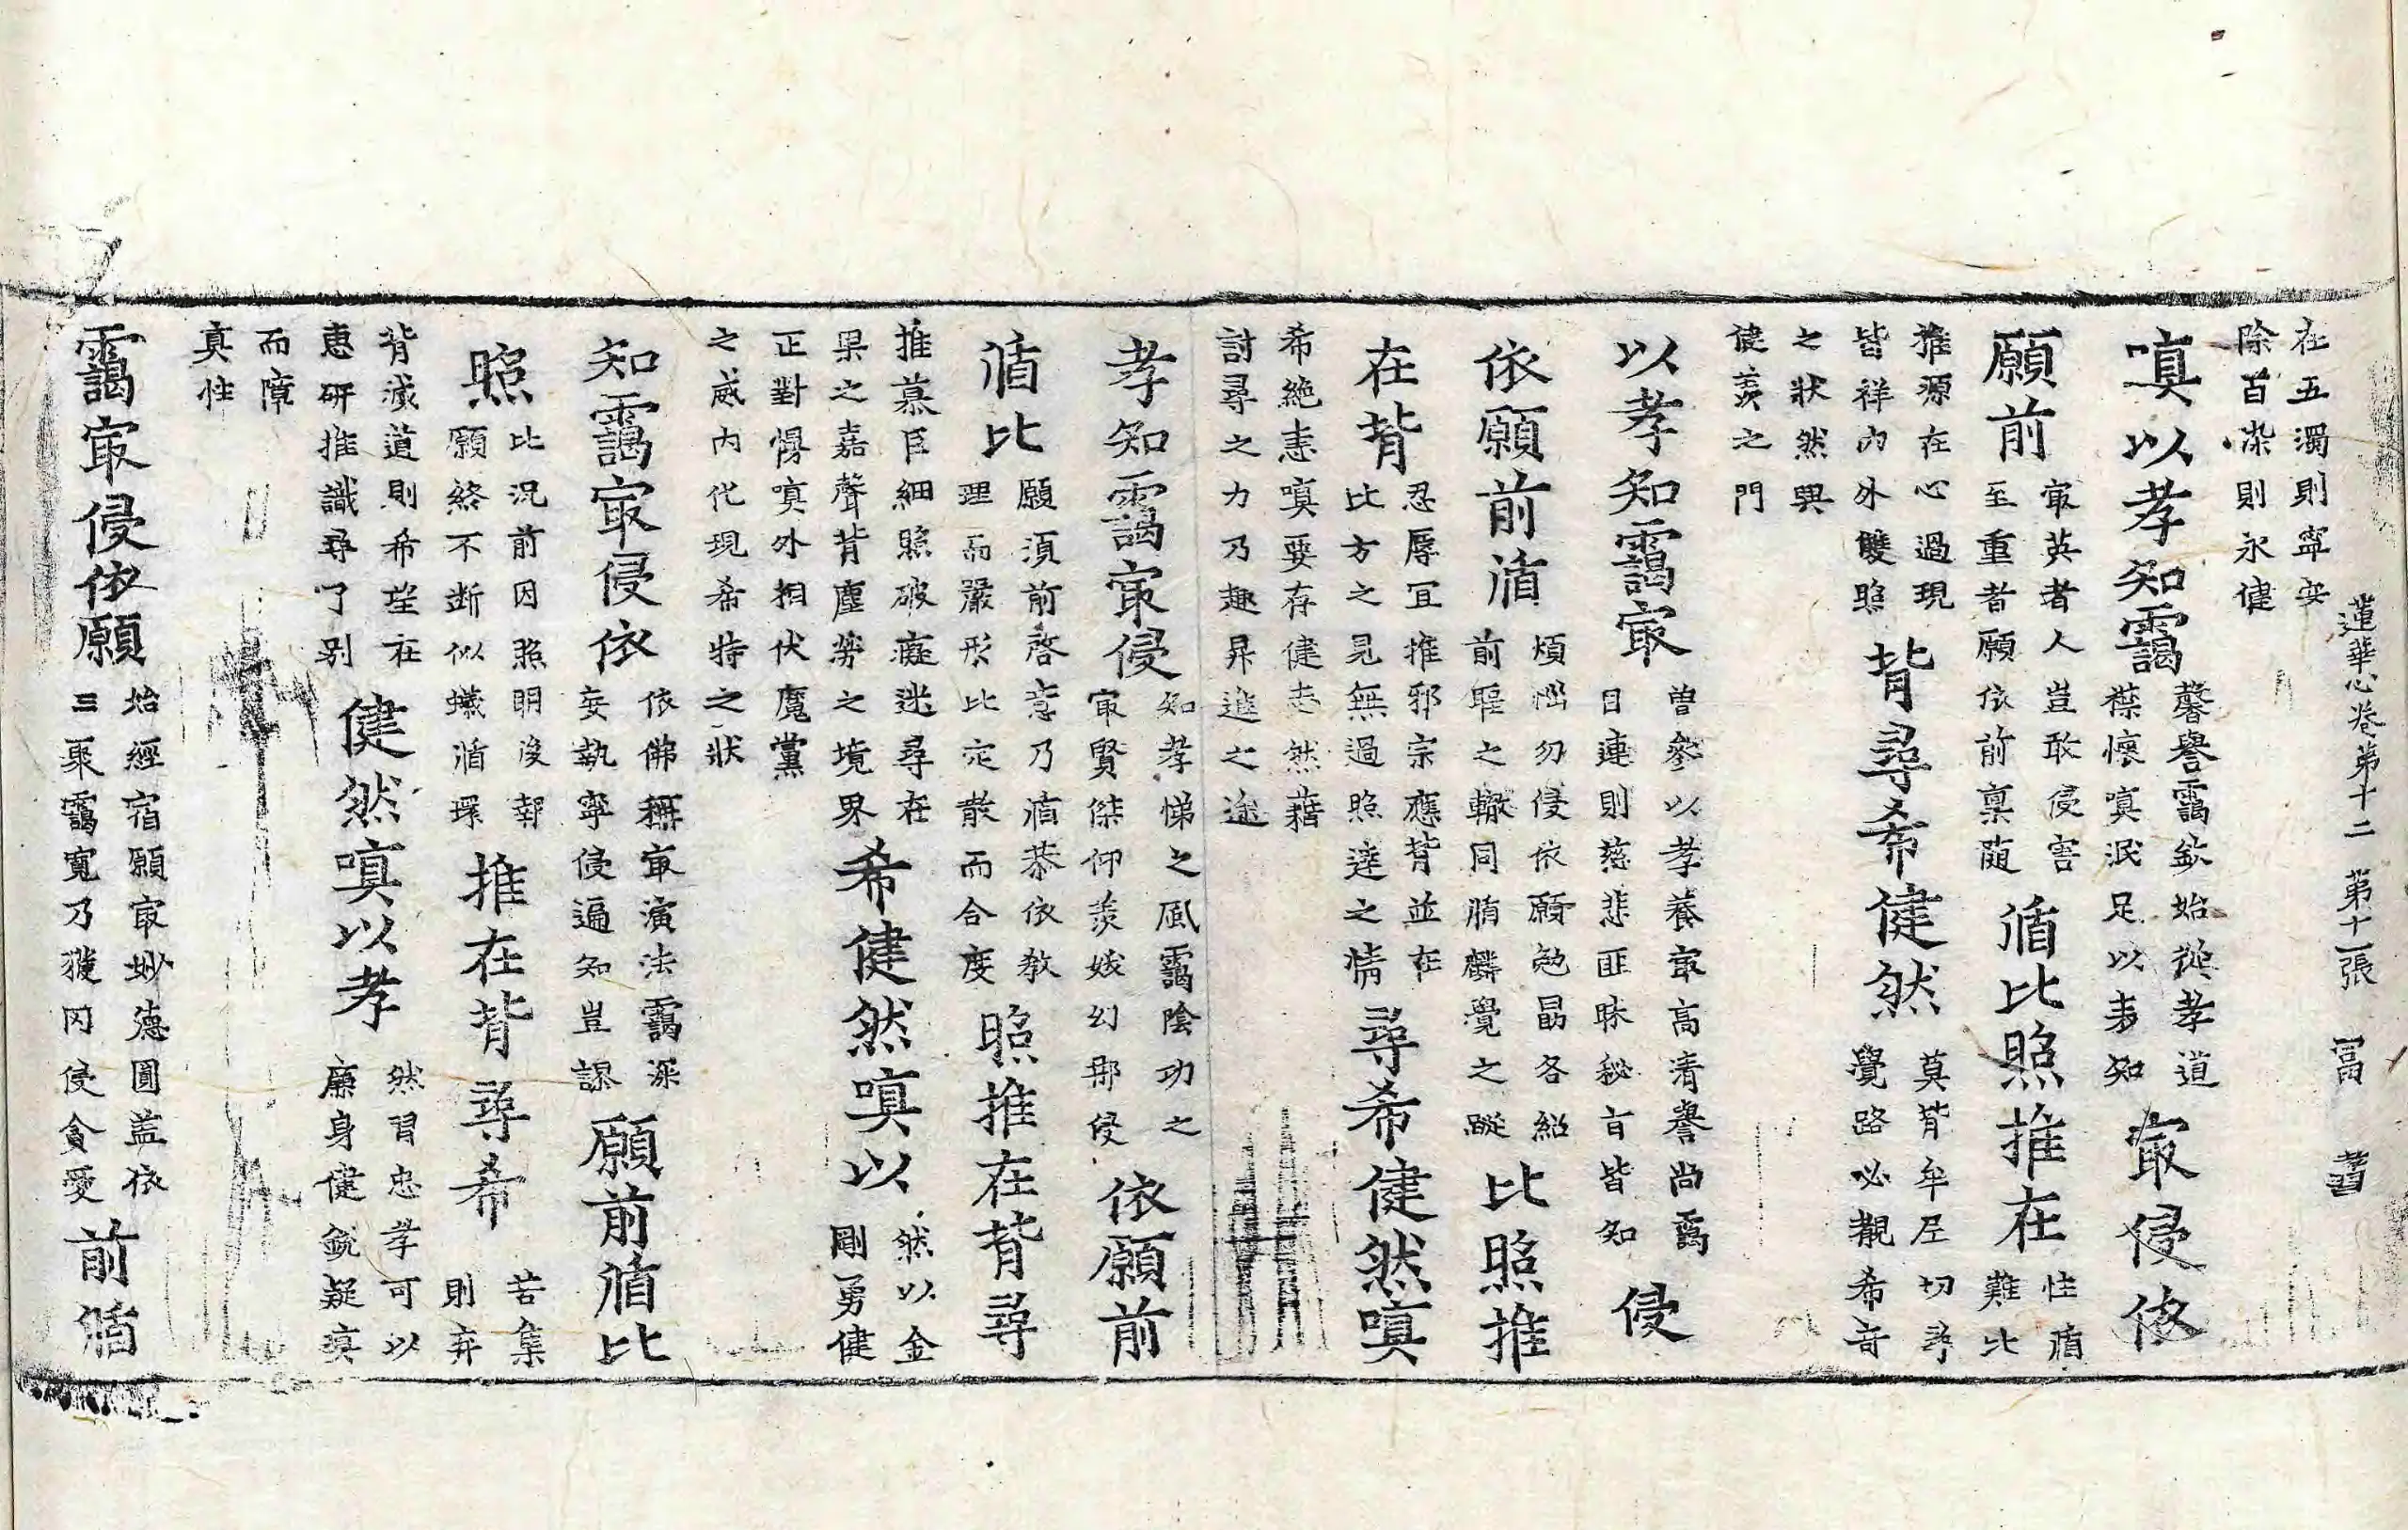 在五濁則寧安
除百染則永健
蓮華心卷第十二 第十一張 富
嗔以孝知靄
馨譽靄欽始從孝道
襟懷嗔泯足以表知
㝡侵依
願前
㝡英者人豈敢侵害
至重者願依前稟隨
循比照推在
性循
難比
推源在心過現
皆祥內外雙照
背尋希健然
莫背牟尼切尋
覺路必覩希奇
之狀然與
健羨之門
以孝知靄㝡
曽參以孝養㝡高清譽尚靄
目連則慈悲匪昧秘旨皆知
侵
依願前循
煩惱勿侵依願勉勗各紹
前驅之轍同循麟覺之蹤
比照推
在背
忍辱冝推邪宗應背並在
比方之見無過照達之情
尋希健然嗔
希絶恚嗔要存健志然藉
討尋之力乃趣昇進之途
孝知靄㝡侵
知孝悌之風靄陰功之
㝡賢傑仰羨娥幻那侵
依願前
循比
願須前啓意乃循恭依教
理而嚴形比定散而合度
照推在背尋
推慕巨細照破癡迷尋在
果之嘉聲背塵勞之境界
希健然嗔以
然以金
剛勇健
正對慢嗔外相伏魔黨
之威內化現希特之狀
知靄㝡侵依
依佛稱㝡演法靄深
妄執寧侵遍知豈謬
願前循比
照
比況前因照明後報
願終不斷似蟻循環
推在背尋希
苦集
則弃
背滅道則希望在
惠研推識尋了别
健然嗔以孝
然習忠孝可以
廉身健銳凝嗔
而障
真性
靄㝡侵依願
始經宿願㝡妙德圓盖依
三聚靄寬乃獲罔侵貪愛
前循